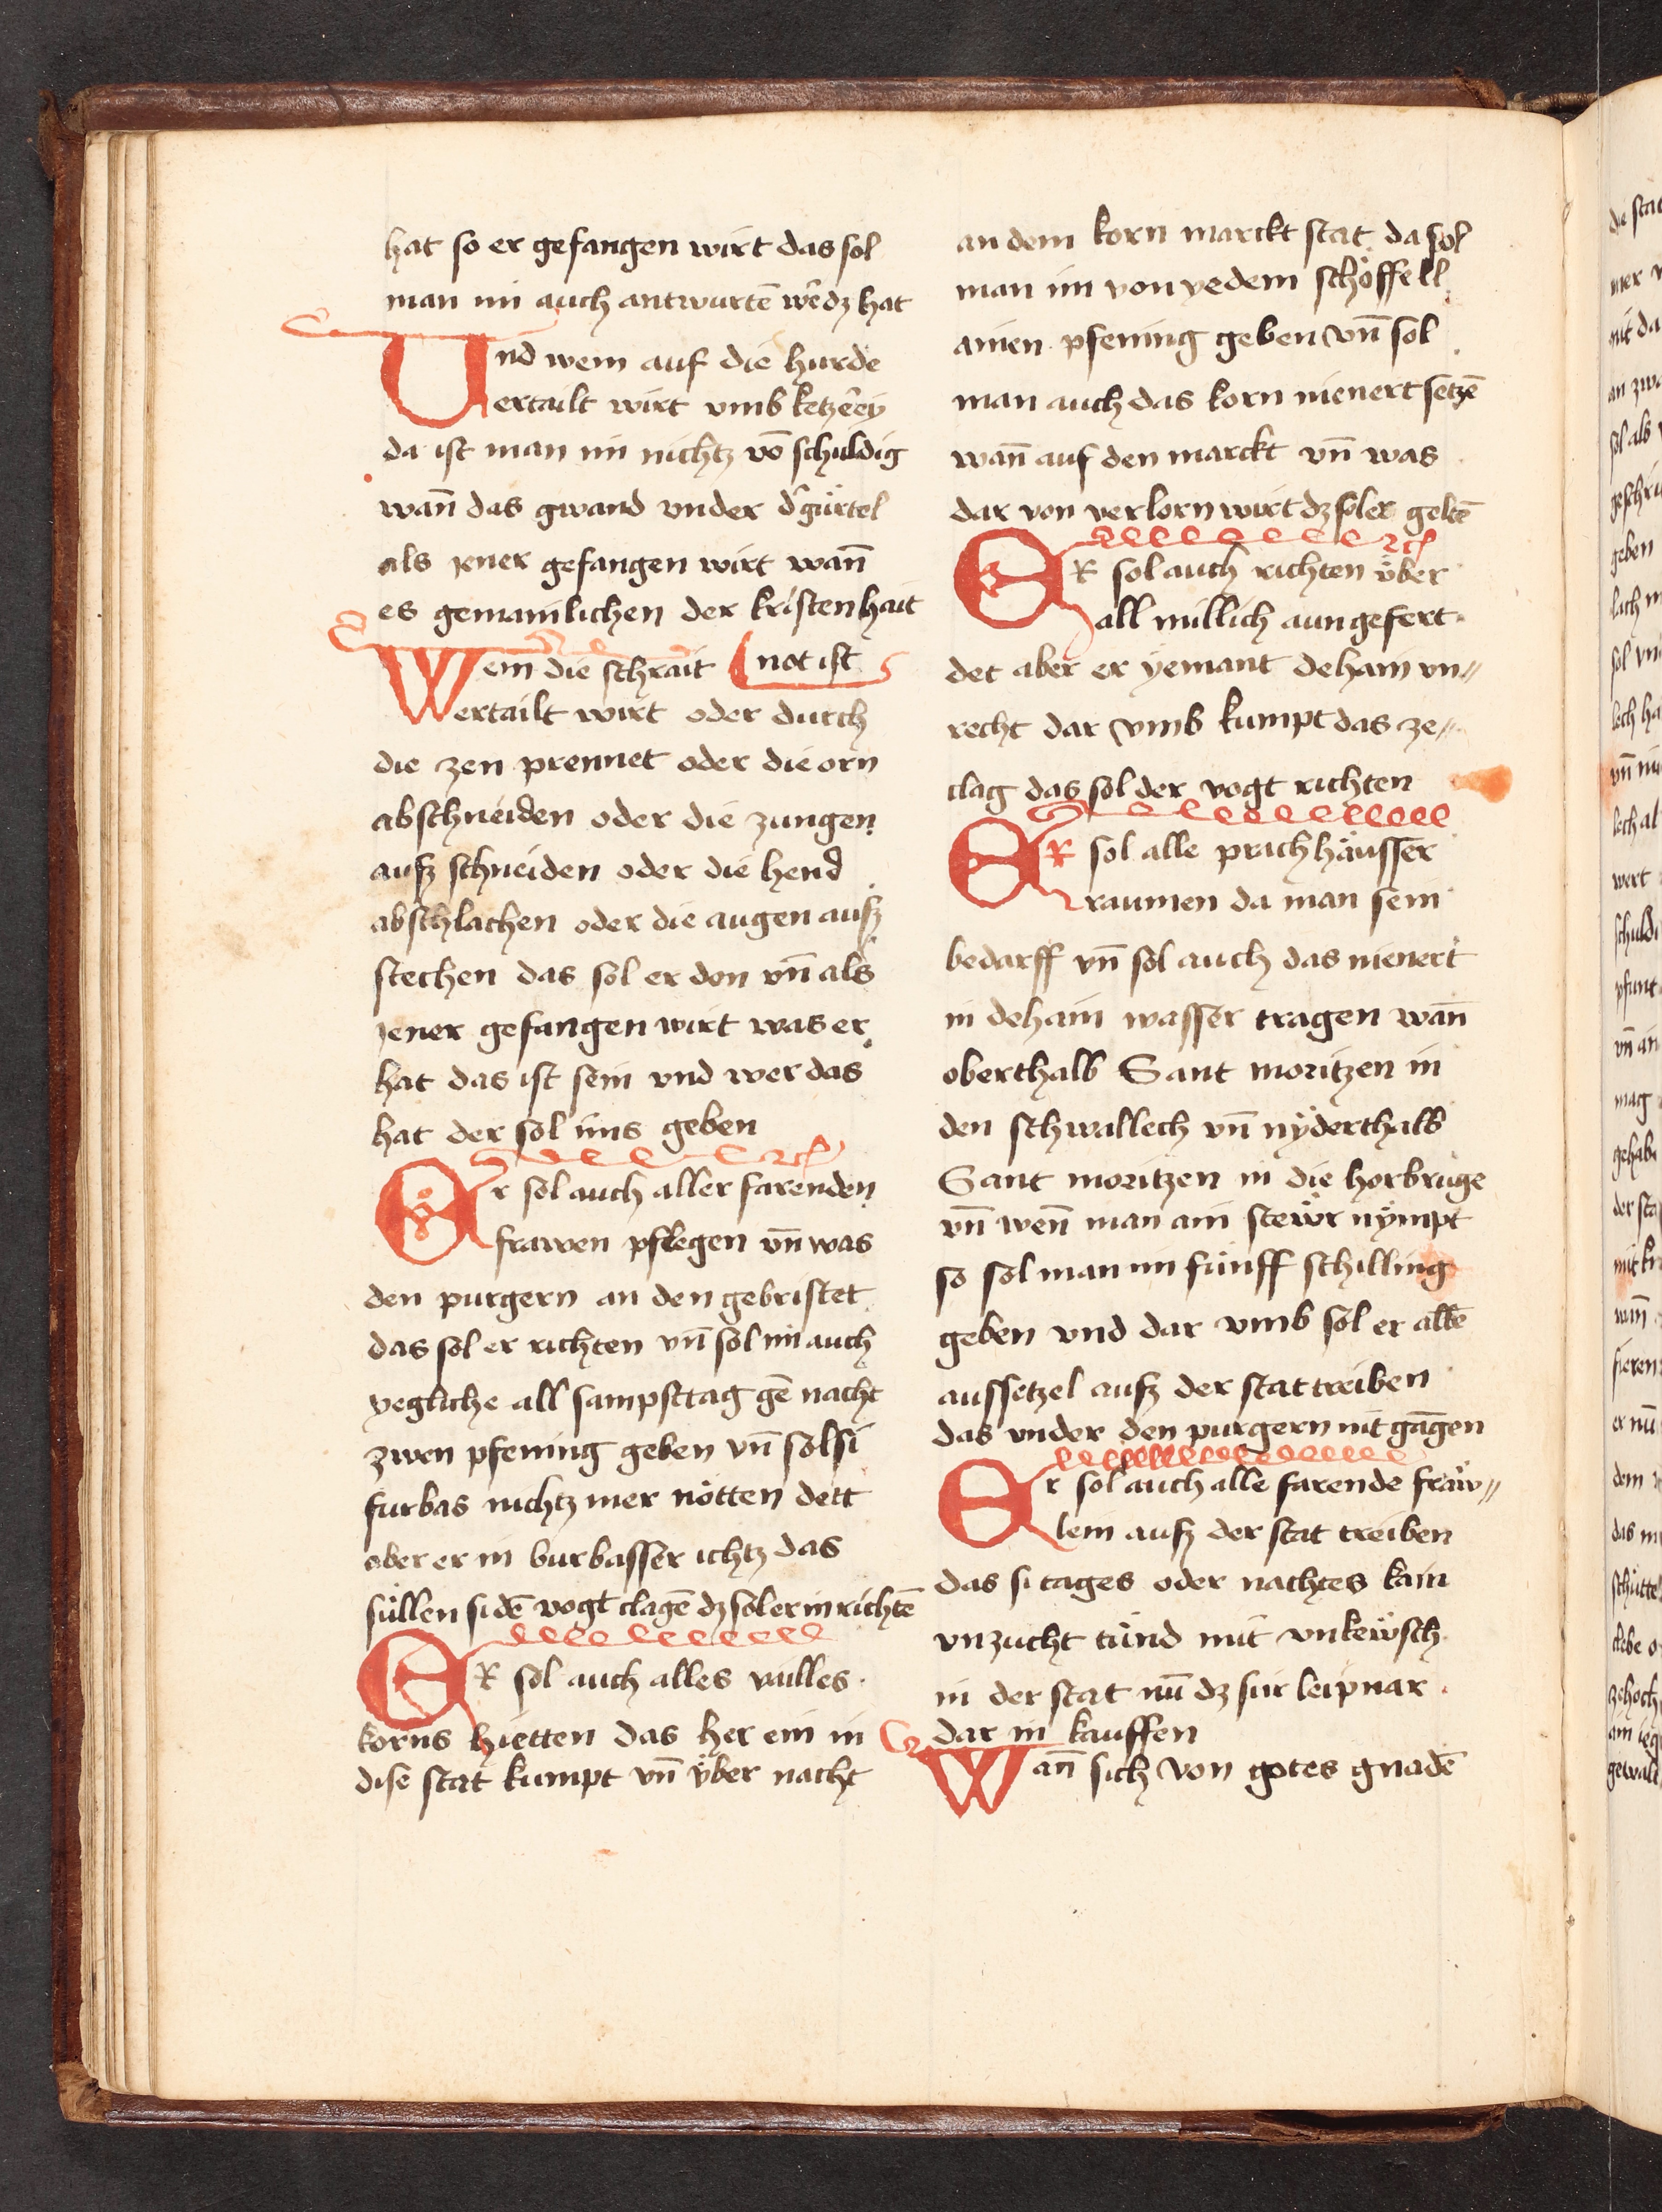 hat so er gefangen wirt das sol
man im auch antwurtē wʼdʒ hat
Und wem auf die hurde
ertailt wirt vmb ketzʼey
da ist man im nichtz vō schuldig
wan̄ das gwand vnder dʼ gürtel
als jener gefangen wirt wan̄
es gemainlichen der kristenhait
not ist
Wem die schrait
ertailt wirt oder durch
die zen prennet oder die orn
abschneiden oder die zungen
ausz schneiden oder die hend
abschlachen oder die augen ausz
stechen das sol er don vn̄ als
jener gefangen wirt was er
hat das ist sein vnd wer das
hat der sol ims geben
Er sol auch aller farenden
frawen pflegen vn̄ was
den purgern an den gebristet
das sol er richten vn̄ sol im auch
yegliche all sampsttag gē nacht
zwen pfening geben vn̄ sol si
furbas nichtz mer nötten dett
aber er in burbasser ichtz das
süllen si dē vogt clagē dʒ sol er in richtē
ER sol auch alles vailles
korns hietten das her ein in
dise stat kumpt vn̄ über nacht
an dem korn marckt stat da sol
man im von yedem schöffell
ainen pfening geben vn̄ sol
man auch das korn nienert setzē
wan̄ auf den marckt vn̄ was
dar von verlorn wirt dʒ sol er geltē
ER sol auch richten über
all millich aun gefert
det aber er yemant dehain vn〃
recht dar vmb kumpt das ze〃
clag das sol der vogt richten
ER sol alle prach häusser
raumen da man sein
bedarff vn̄ sol auch das nienert
in dehain wasser tragen wan̄
oberthalb Sant moritzen in
den schwallech vn̄ nyderthalb
Sant moritzen in die horbruge
vn̄ wen̄ man ain stewr nympt
so sol man im fünff schilling
geben vnd dar vmb sol er allē
aussetzel ausz der stat treiben
das vnder den purgern nit gāgen
Er sol auch alle farende fräw〃
lem ausz der stat treiben
das si tages oder nachtes kain
vnzucht tünd mit vnkewsch
in der stat nū dʒ si ir leipnar
dar in kauffen
Wan̄ sich von gotes gnadē